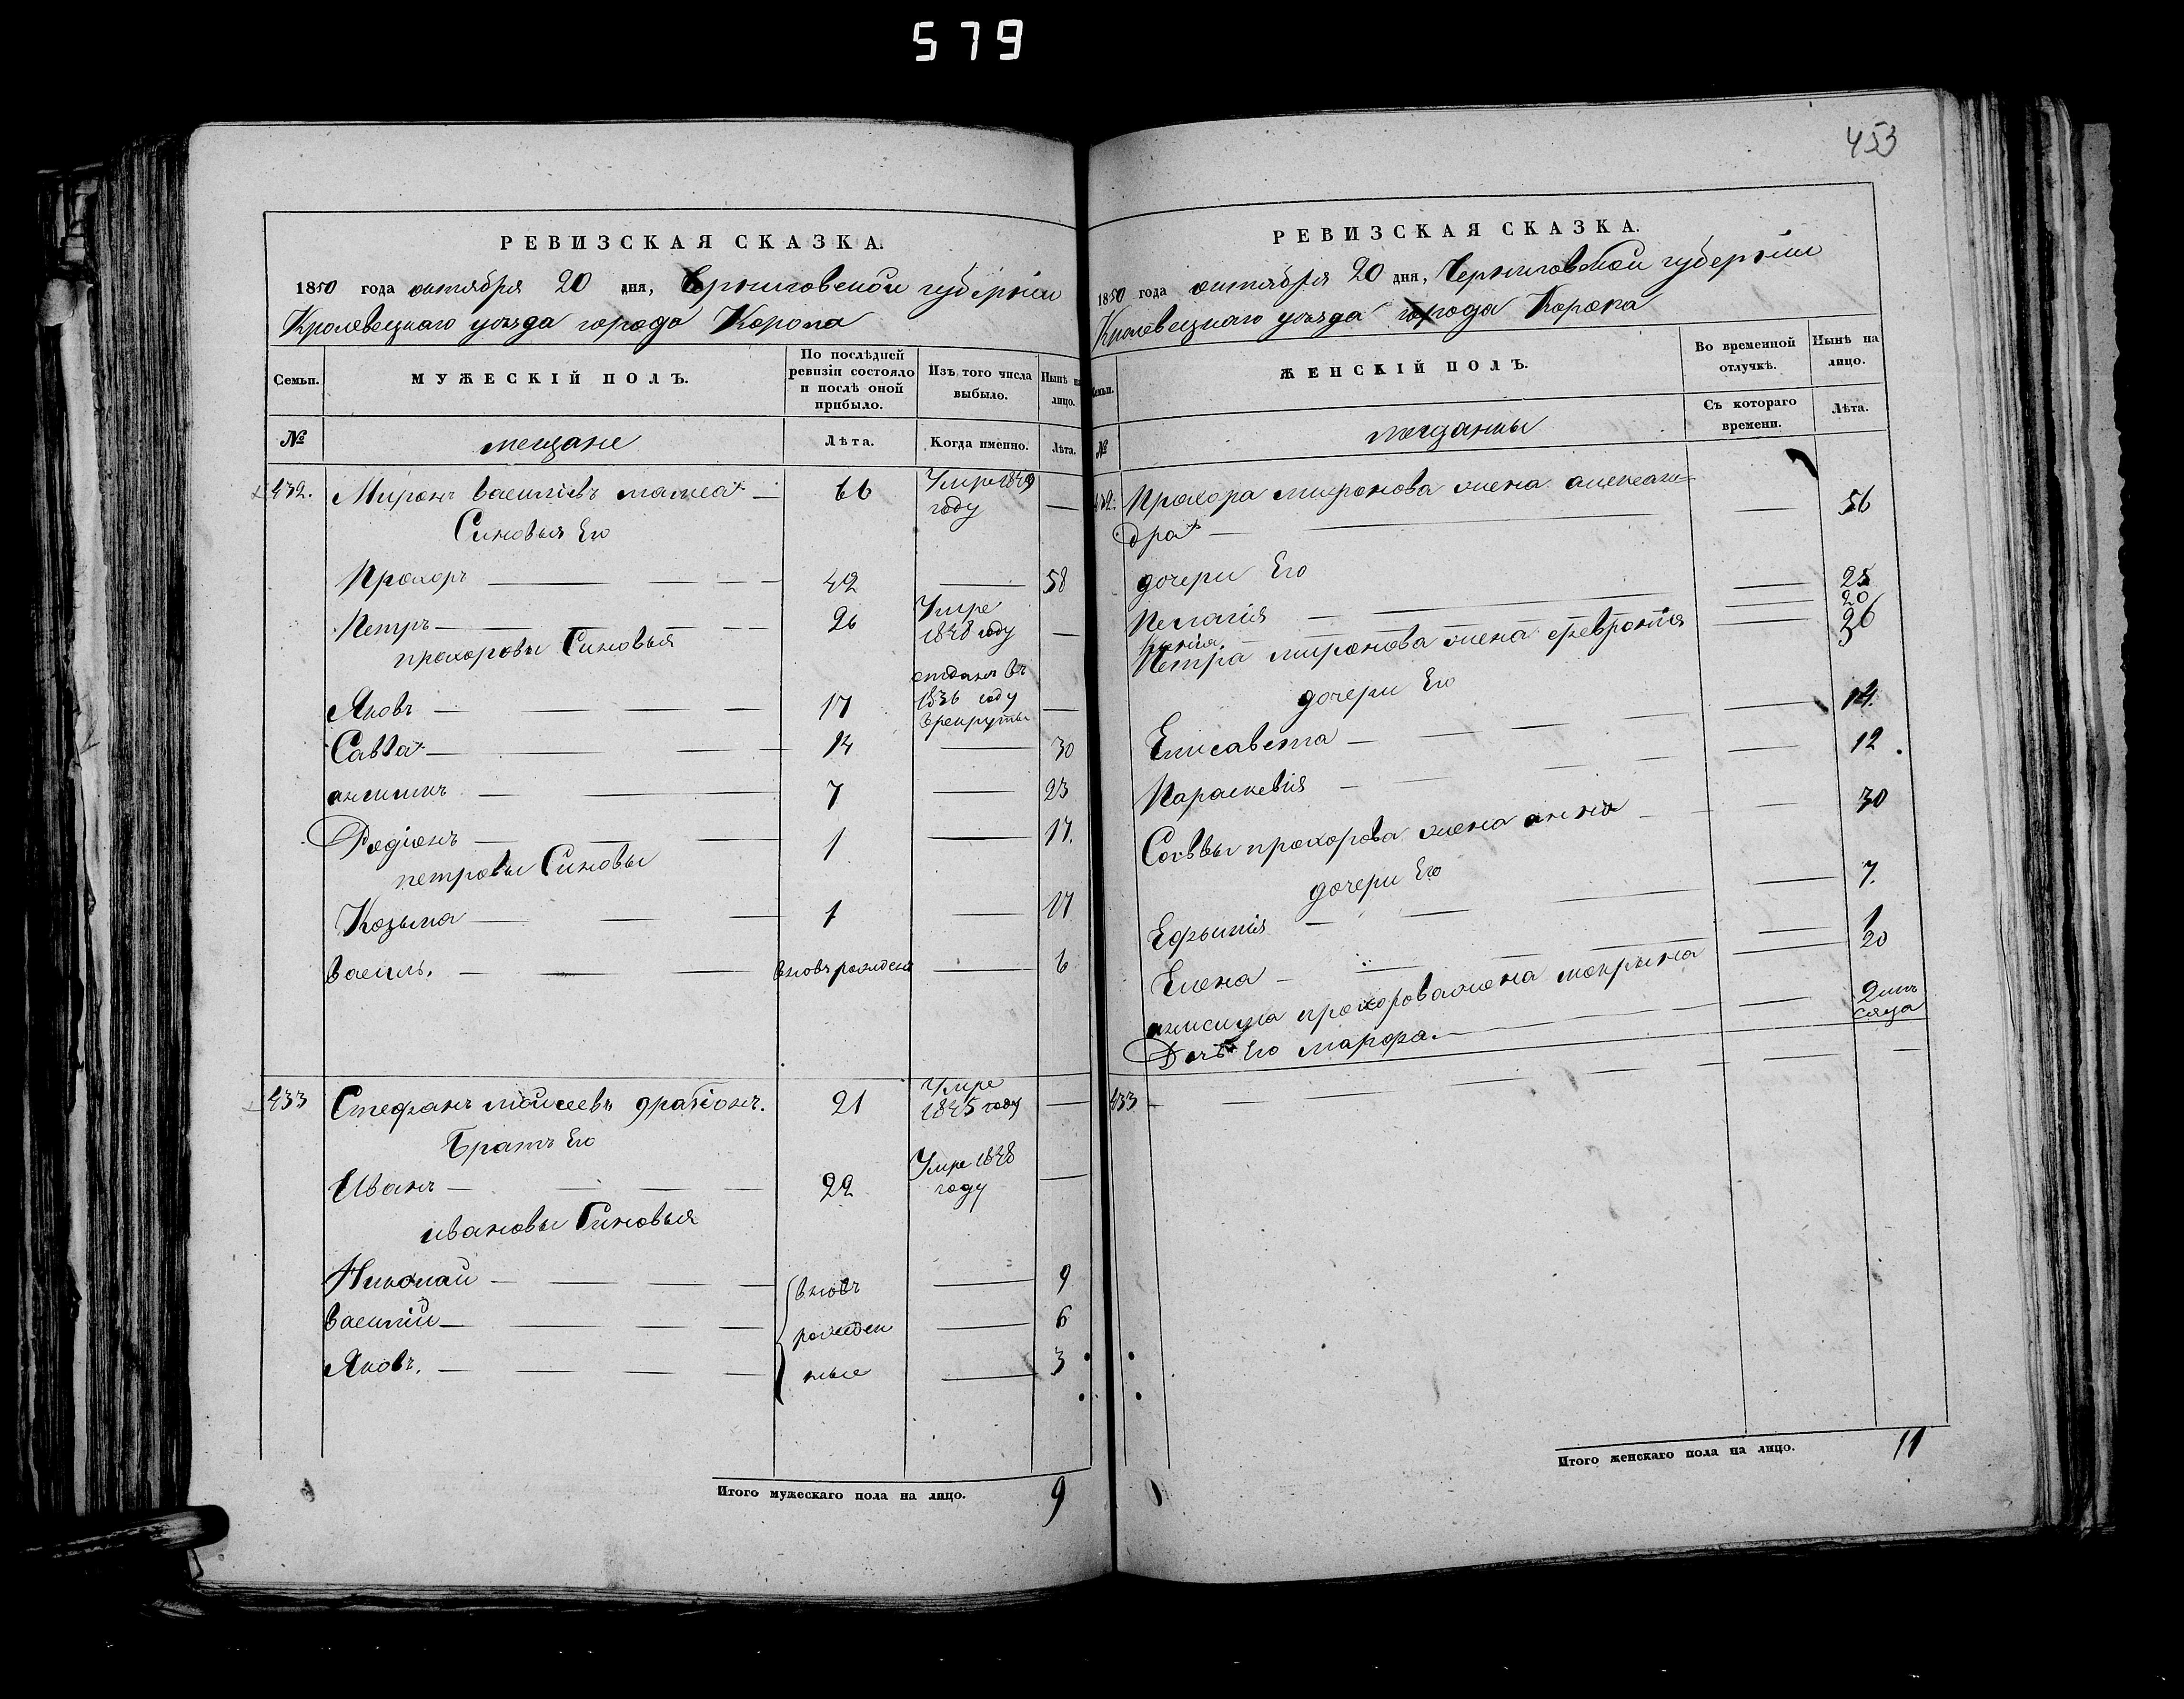 579
453
РЕВИЗСКАЯ СКАЗКА.
1850 года октября 20 дня, Черниговской губернии
Кролевецкаго уезда города Коропа
Семьи. МУЖЕСКІЙ ПОЛЪ. По послѣдней ревизіи состояло и послѣ оной прибыло. Изъ того числа выбыло. Нынѣ на лицо.
№ мещане Лѣта. Когда именно. Лѣта.
432. Миронъ Васильевъ 66 Умре 1849 году —
Синовья Его
Прохоръ 42 — 58
Петръ 26 Умре 1848 году —
прохоровы Синовья
Яковъ 17 отданъ въ 1836 году в рекруты —
Савва 14 — 30
анисимъ 7 — 23
Родіонъ 1 — 17.
петровы Синовы
Козьма 1 — 17
Василь. вновь рожденъ — 6
433 Стефанъ Моисеевъ 21 Умре 1845 году —
Братъ Его
Иванъ 22 Умре 1848 году —
ивановы Синовья
Николай вновь — 9
Василій рожден — 6
Яковъ. ные — 3
Итого мужескаго пола на лицо. 9
РЕВИЗСКАЯ СКАЗКА.
1850 года октября 20 дня, Черниговской губерніи
Кролевецкаго уезда города Коропа
Семьи. ЖЕНСКІЙ ПОЛЪ. Во временной отлучкѣ. Нынѣ на лицо.
№ мещанки Съ котораго времени. Лѣта.
432. Прохора миронова жена александра — 56
дочери Его
Пелагія — 25
— 20
Петра миронова жена феврония — 26
дочери Его
Елисавета — 14.
Параскевия — 12
Саввы прохорова жена анна — 30
дочери Его
Ефимия — 7.
Елена — 1
анисима прохорова жена мокрина — 20
Дочь Его марфа — 2 месяца
433 —
Итого женскаго пола на лицо. 11